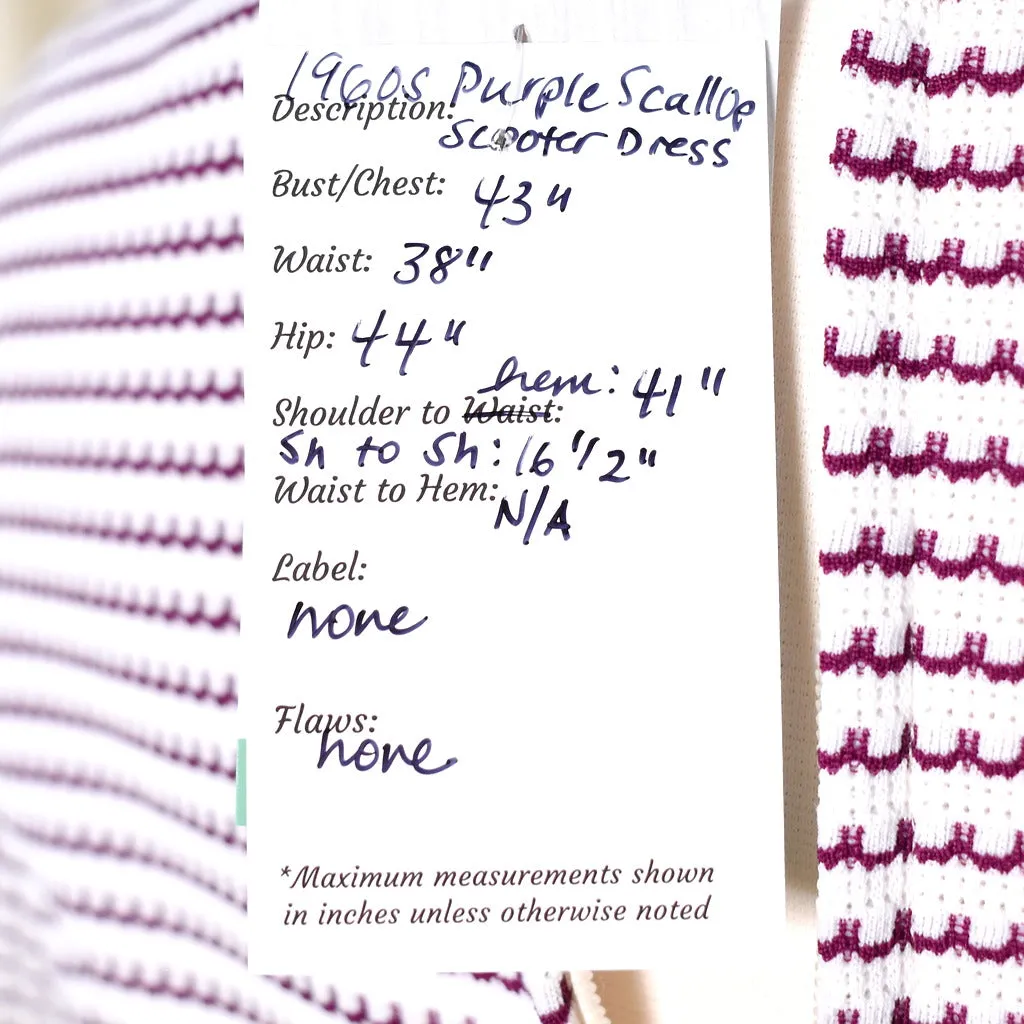 1960s Purple Scallop
Description:
Scooter Dress
Bust/Chest: 43"
Waist: 38"
Hip: 44"
hem: 41"
Shoulder to Waist:
Sh to Sh: 16 1/2"
Waist to Hem: N/A
Label:
none
Flaws:
none
*Maximum measurements shown
in inches unless otherwise noted